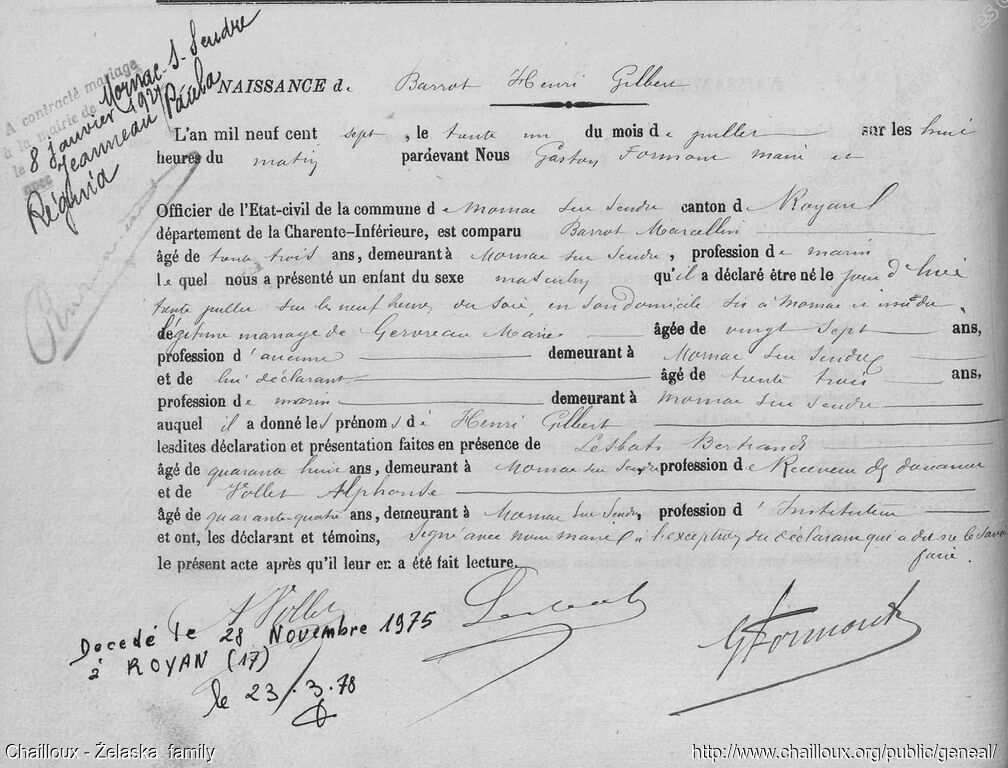 A contracté mariage
à la mairie de Mornac-s-Seudre
le 8 Janvier 1927
avec Jeanneau Paula
Régina
NAISSANCE de Barrot Henri Gilbert
L'an mil neuf cent sept, le trente un du mois de juillet sur les huit
heures du matin pardevant Nous Gaston Formont maire et
Officier de l'Etat-civil de la commune de Mornac sur Seudre canton de Royan
département de la Charente-Inférieure, est comparu Barrot Marcellin
âgé de trente trois ans, demeurant à Mornac sur Seudre, profession de marin
Lequel nous a présenté un enfant du sexe masculin qu'il a déclaré être né le jour d'hier
trente juillet sur les neuf heures du soir, en son domicile sis à Mornac et issu du
de légitime mariage de Gervreau Marie âgée de vingt sept ans,
profession d'aucune demeurant à Mornac sur Seudre
et de lui déclarant âgé de trente trois ans,
profession de marin demeurant à Mornac sur Seudre
auquel il a donné les prénoms de Henri Gilbert
lesdites déclaration et présentation faites en présence de Lesbats Bertrand
âgé de quarante huit ans, demeurant à Mornac sur Seudre profession de Receveur des douanes
et de Vollet Alphonse
âgé de quarante-quatre ans, demeurant à Mornac sur Seudre, profession d'Instituteur
et ont, les déclarant et témoins, signé avec nous maire à l'exception du déclarant qui a dit ne le savoir
faire
le présent acte après qu'il leur en a été fait lecture.
A Vollet Lesbats G Formont
Decedé le 28 Novembre 1975
à ROYAN (17)
le 23.3.78
Chailloux - Żelaska family
http://www.chailloux.org/public/geneal/